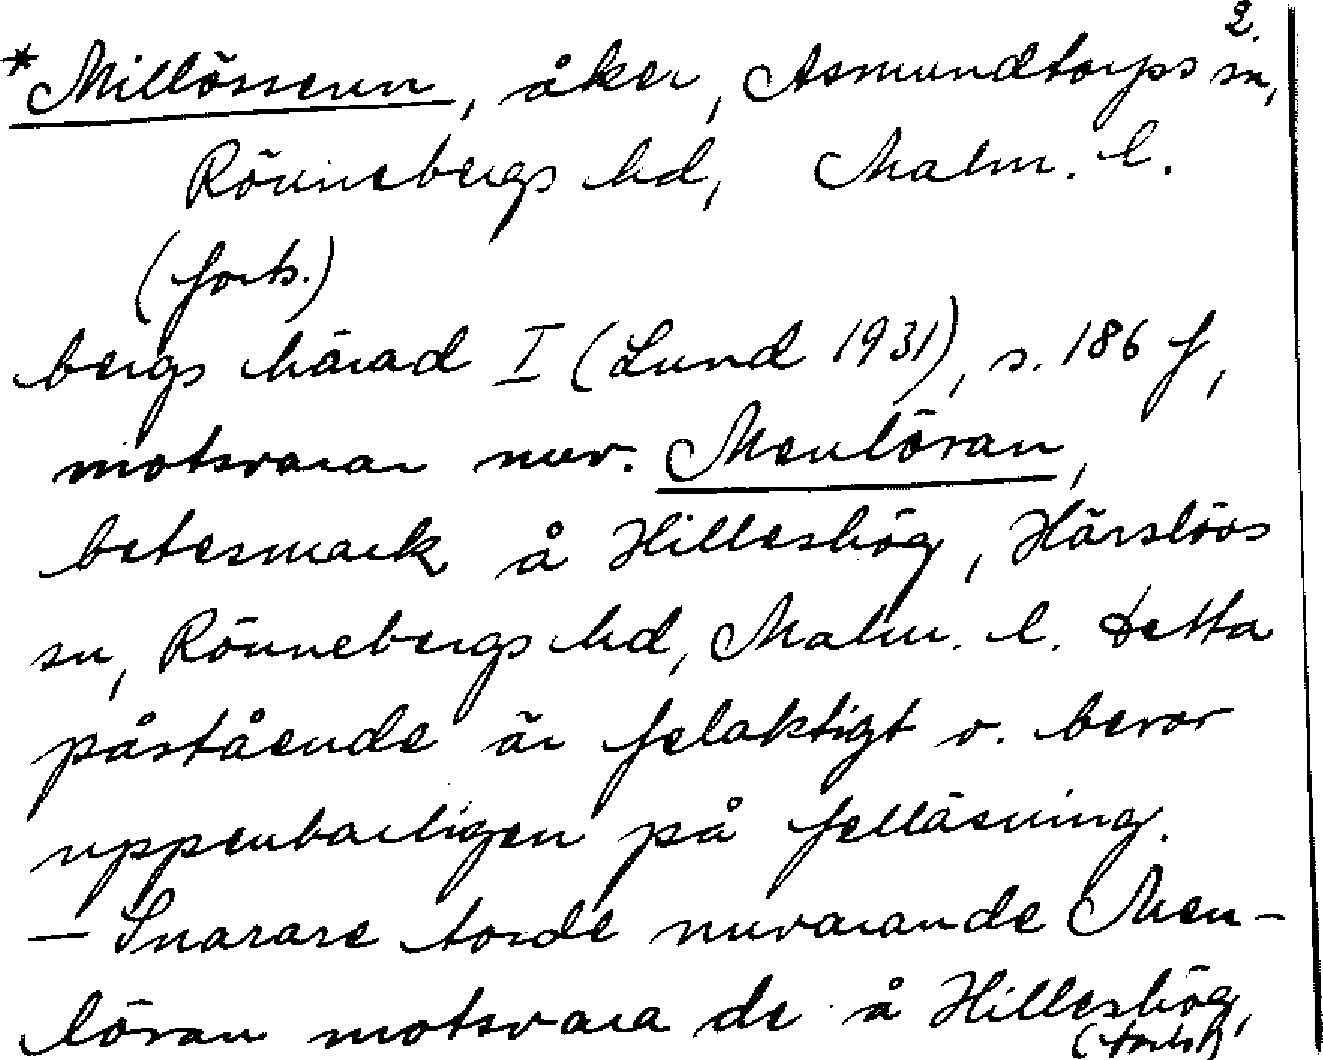 2.
*Millösseun, åker, Asmundtorps sn,
Rönnebergs hd, Malm. l.
(forts.)
bergs härad I (Lund 1931), s. 186 f,
motsvarar nuv. Menlöran,
betesmark å Hilleshög, Härslövs
sn, Rönnebergs hd, Malm. l. Detta
påstående är felaktigt o. beror
uppenbarligen på felläsning.
— Snarare torde nuvarande Men-
löran motsvara de å Hilleshög,
(forts.)